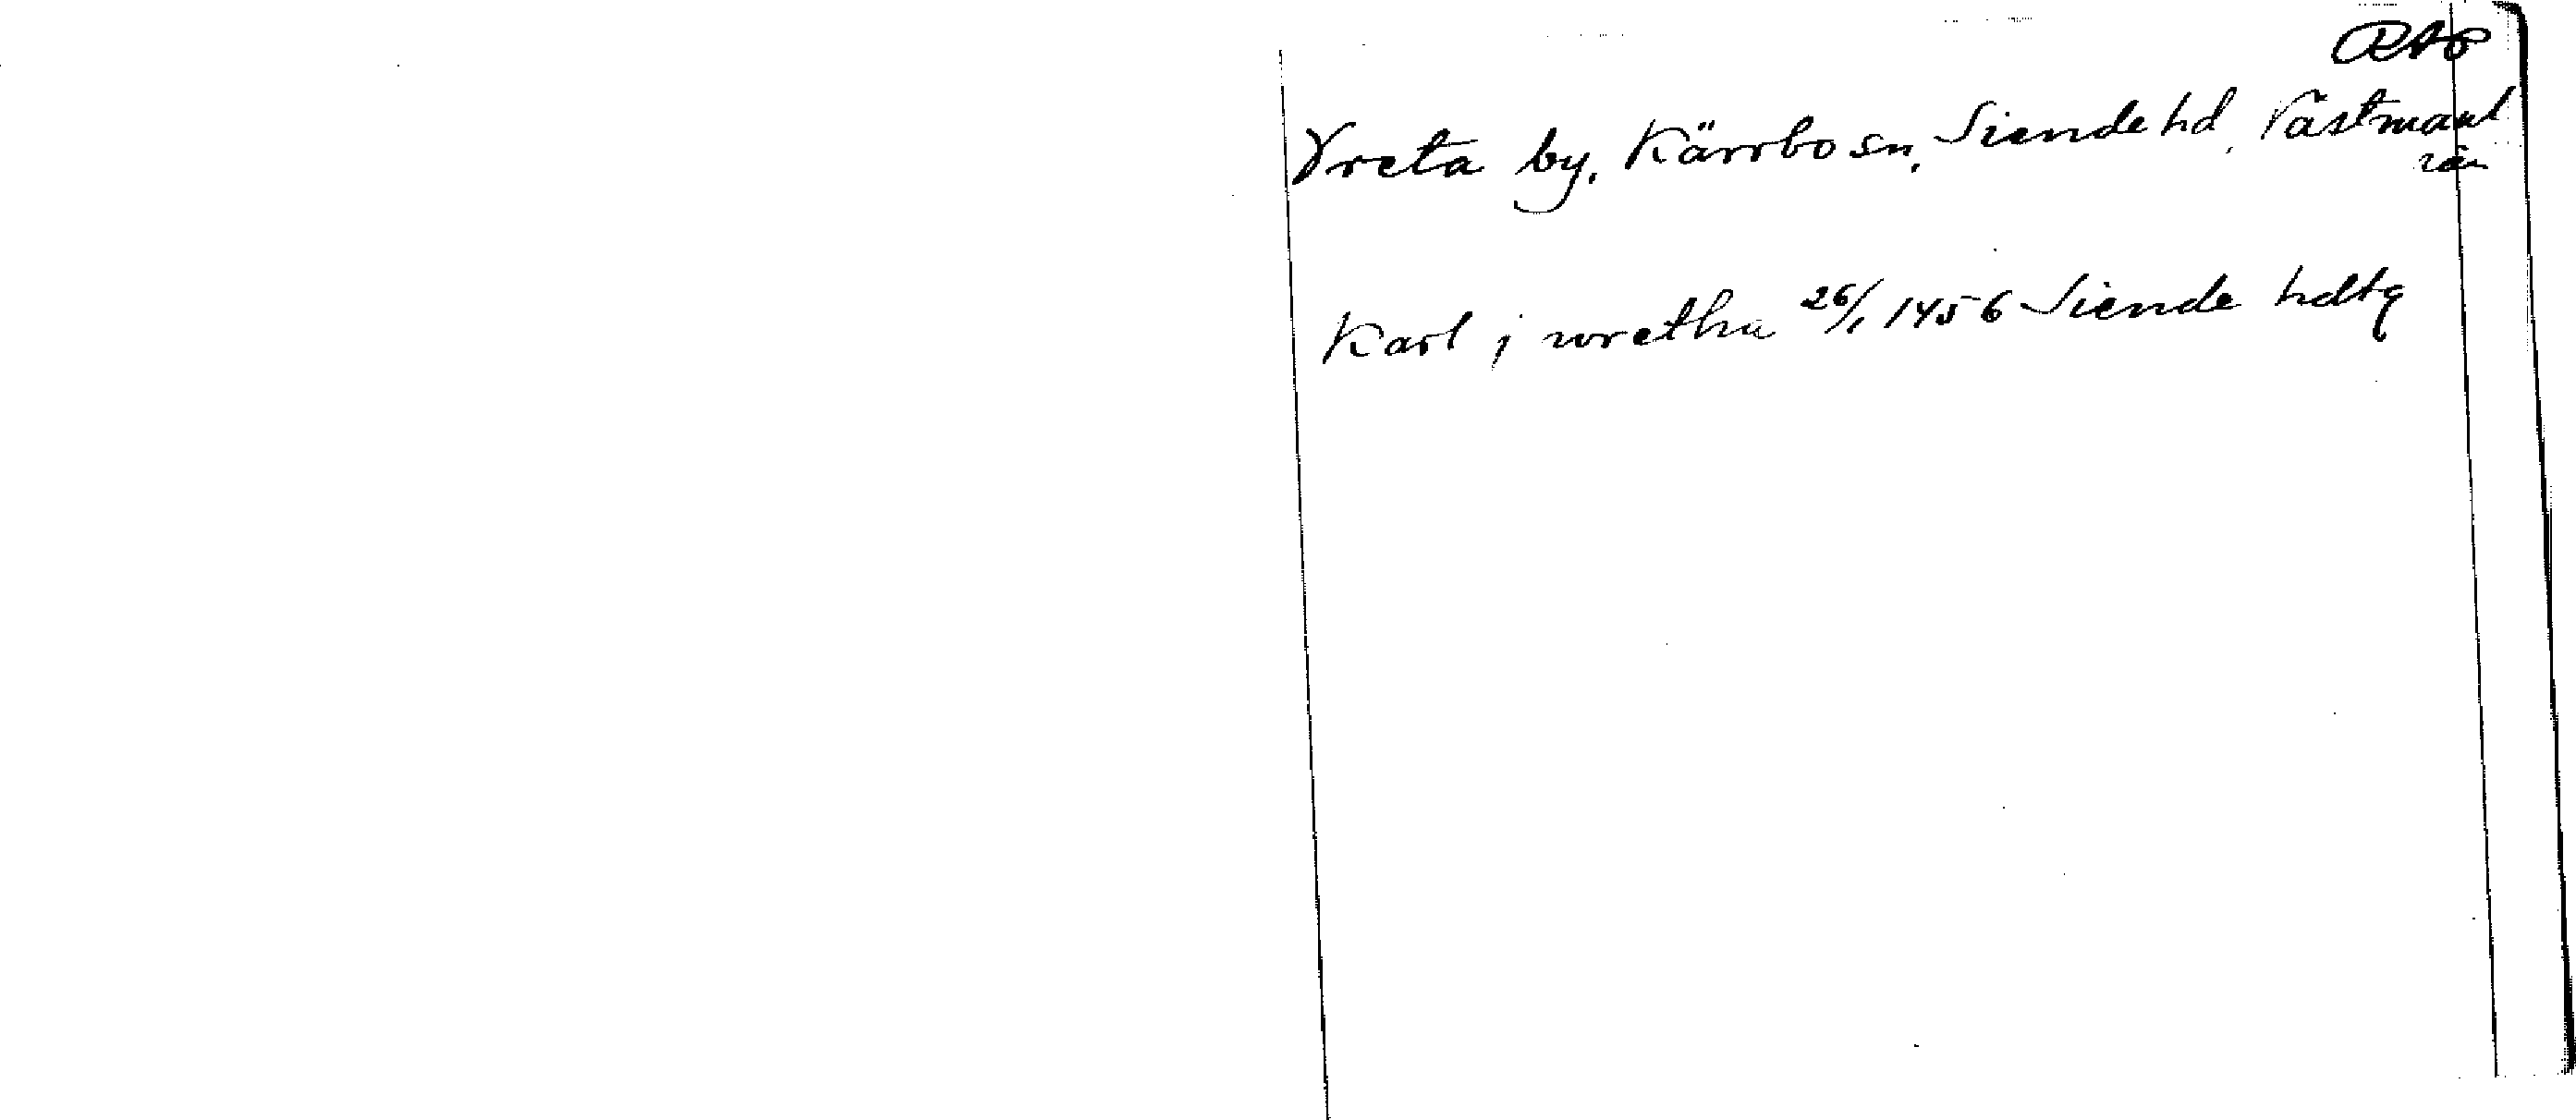 RAp
Vreta by, Kärrbo sn, Siende hd, Västmanl
Karl j wretha 26/1 1456 Siende hdtg